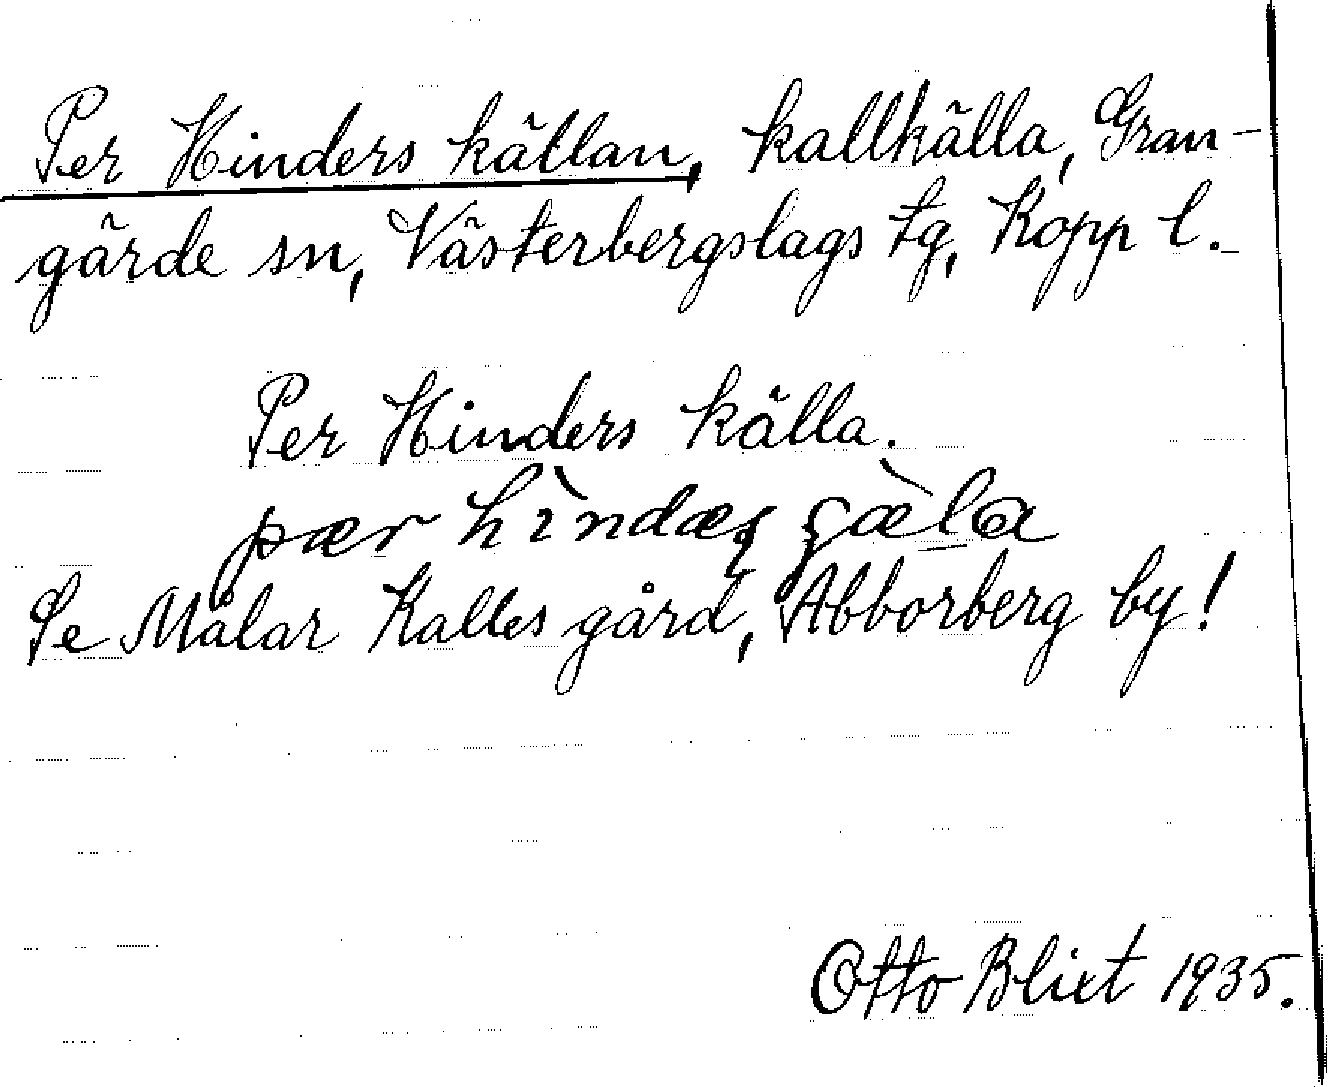 Per Hinders källan, kallkälla, Gran-
gärde sn, Västerbergslags tg, Kopp l.
Per Hinders källa.
pær hìndæș gæ̀la
Se Målar Kalles gård, Abborberg by!
Otto Blixt 1935.